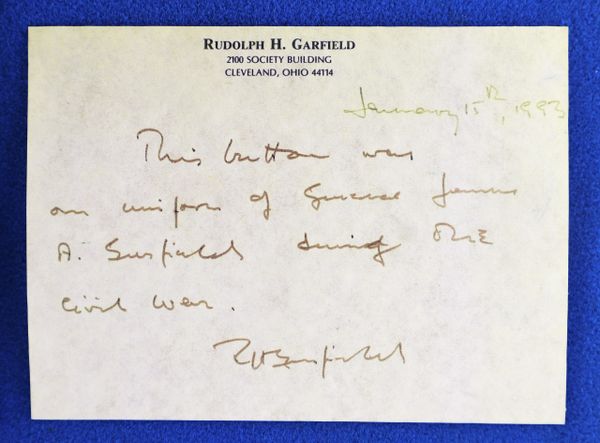 RUDOLPH H. GARFIELD
2100 SOCIETY BUILDING
CLEVELAND, OHIO 44114
January 15th, 1993
This button was
on uniform of General James
A. Garfield during THE
Civil War.
RHGarfield